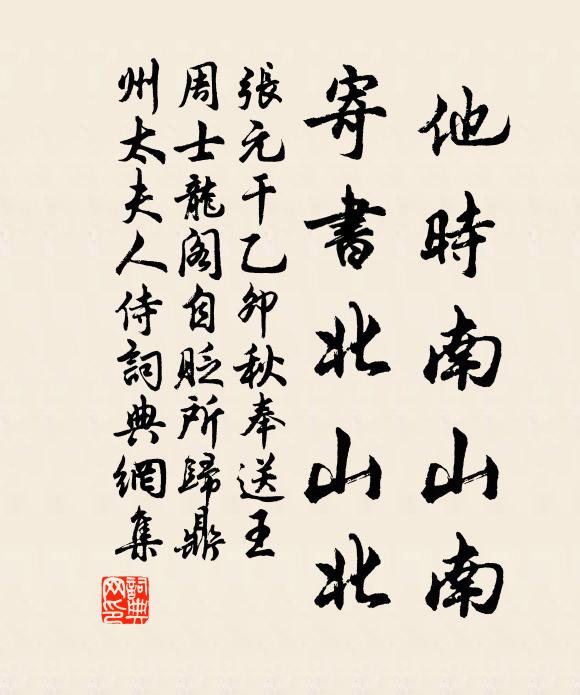 他時南山南
寄書北山北
張元干乙卯秋奉送王
周士龍閣自貶所歸鼎
州太夫人侍詞典網集
詞典
网印